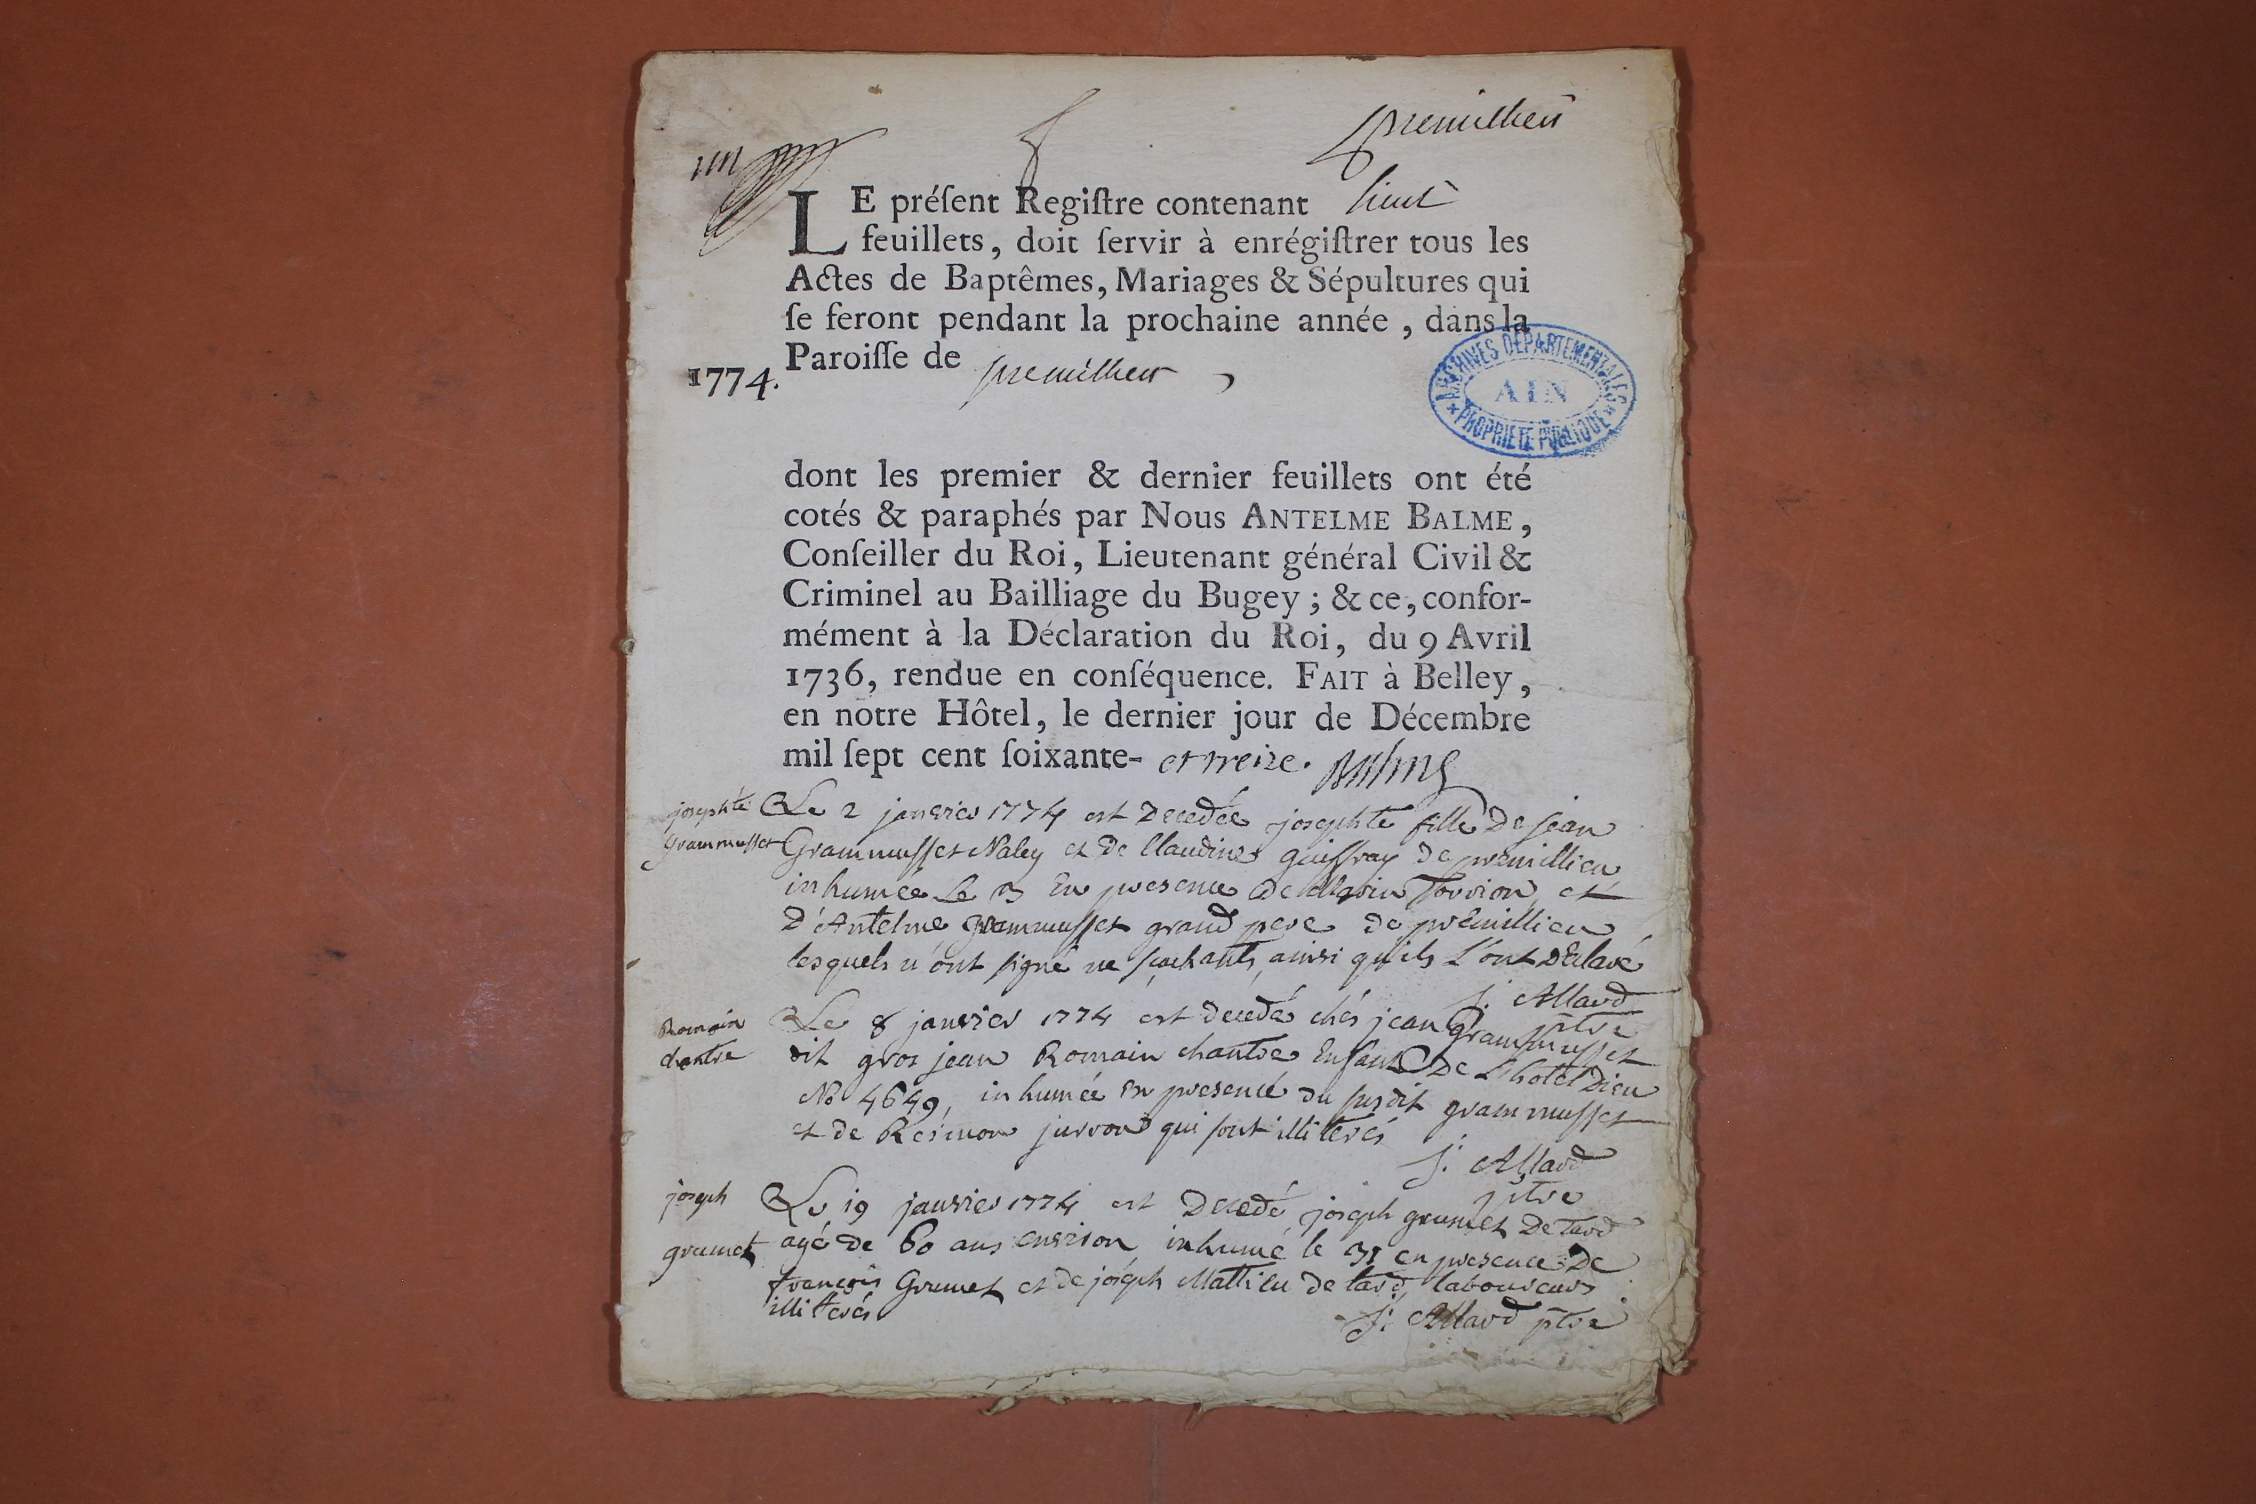 premillieu
un
LE préſent Regiſtre contenant huit
feuillets, doit ſervir à enrégiſtrer tous les
Actes de Baptêmes, Mariages & Sépultures qui
ſe feront pendant la prochaine année, dans la
Paroiſſe de premillieu
1774.
ARCHIVES DÉPARTEMENTALES
AIN
PROPRIÉTÉ PUBLIQUE
dont les premier & dernier feuillets ont été
cotés & paraphés par Nous ANTELME BALME,
Conſeiller du Roi, Lieutenant général Civil &
Criminel au Bailliage du Bugey; & ce, confor-
mément à la Déclaration du Roi, du 9 Avril
1736, rendue en conſéquence. FAIT à Belley,
en notre Hôtel, le dernier jour de Décembre
mil ſept cent ſoixante- et treize. Balme
josephte
grammusset
Le 2 janvier 1774 est decedée josephte fille de jean
Grammusset Naley et de Claudine guiffray de premillieu
inhumée Le 3 En presence de et
D'Antelme grammusset grand pere de premillieu
lesquels n'ont signé ne sçachants ainsi qu'ils L'ont declaré
J. Allard
ptre
Romain
chantre
Le 8 janvier 1774 est decedé chés jean grammusset
dit gros jean Romain chantre Enfant De L'hotel Dieu
No 4649, inhumée En presence du susdit grammusset
et de juvron qui sont illiterés
J. Allard
ptre
joseph
grumet
Le 19 janvier 1774 est Decedé joseph grumet De tard
agé de 60 ans environ inhumé le en presence De
françois Grumet et de joseph Mattieu de tard laboureurs
illiterés
J. Allard ptre